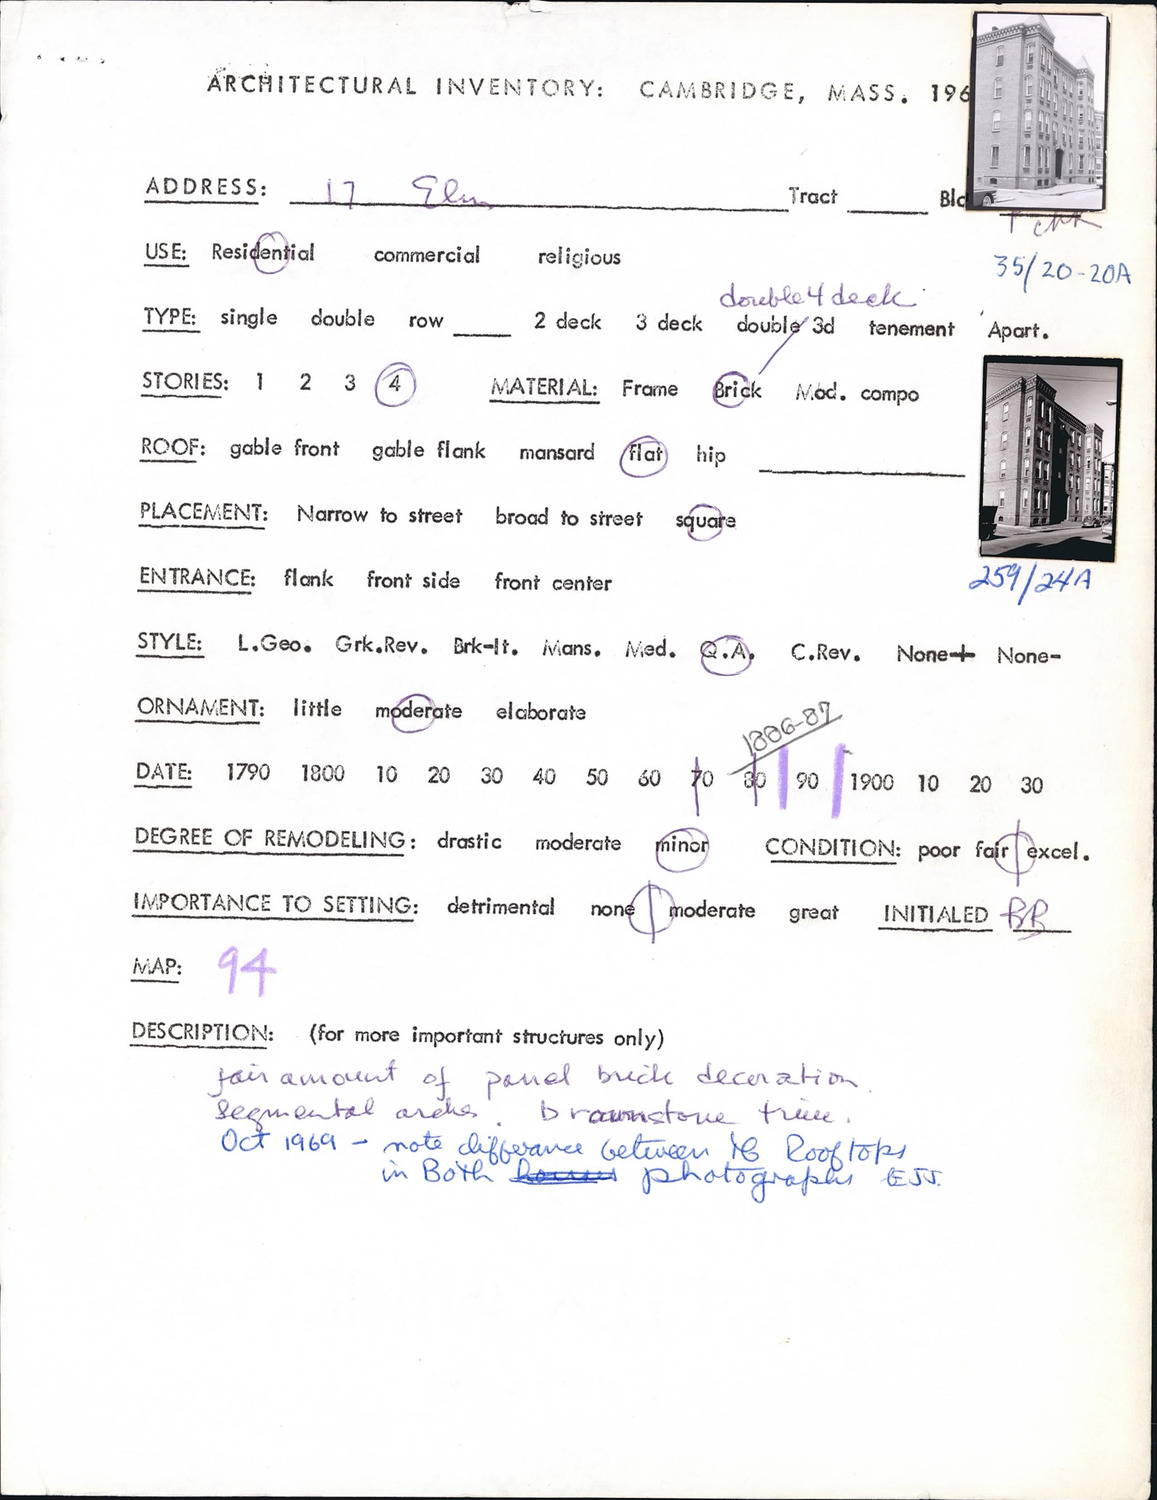 ARCHITECTURAL INVENTORY: CAMBRIDGE, MASS. 196
ADDRESS: 17 Elm Tract Bld
35/20-20A
USE: Residential commercial religious
double 4 deck
TYPE: single double row 2 deck 3 deck double 3d tenement Apart.
STORIES: 1 2 3 4 MATERIAL: Frame Brick Mod. compo
ROOF: gable front gable flank mansard flat hip
PLACEMENT: Narrow to street broad to street square
ENTRANCE: flank front side front center
259/24A
STYLE: L.Geo. Grk.Rev. Brk-It. Mans. Med. Q.A. C.Rev. None+ None-
ORNAMENT: little moderate elaborate
1886-87
DATE: 1790 1800 10 20 30 40 50 60 70 80 90 1900 10 20 30
DEGREE OF REMODELING: drastic moderate minor CONDITION: poor fair excel.
IMPORTANCE TO SETTING: detrimental none moderate great INITIALED BR
MAP: 94
DESCRIPTION: (for more important structures only)
fair amount of panel brick decoration.
Segmental arches. Brownstone trim.
Oct 1969 - note differance between Rooftops
in Both photographs EJJ.